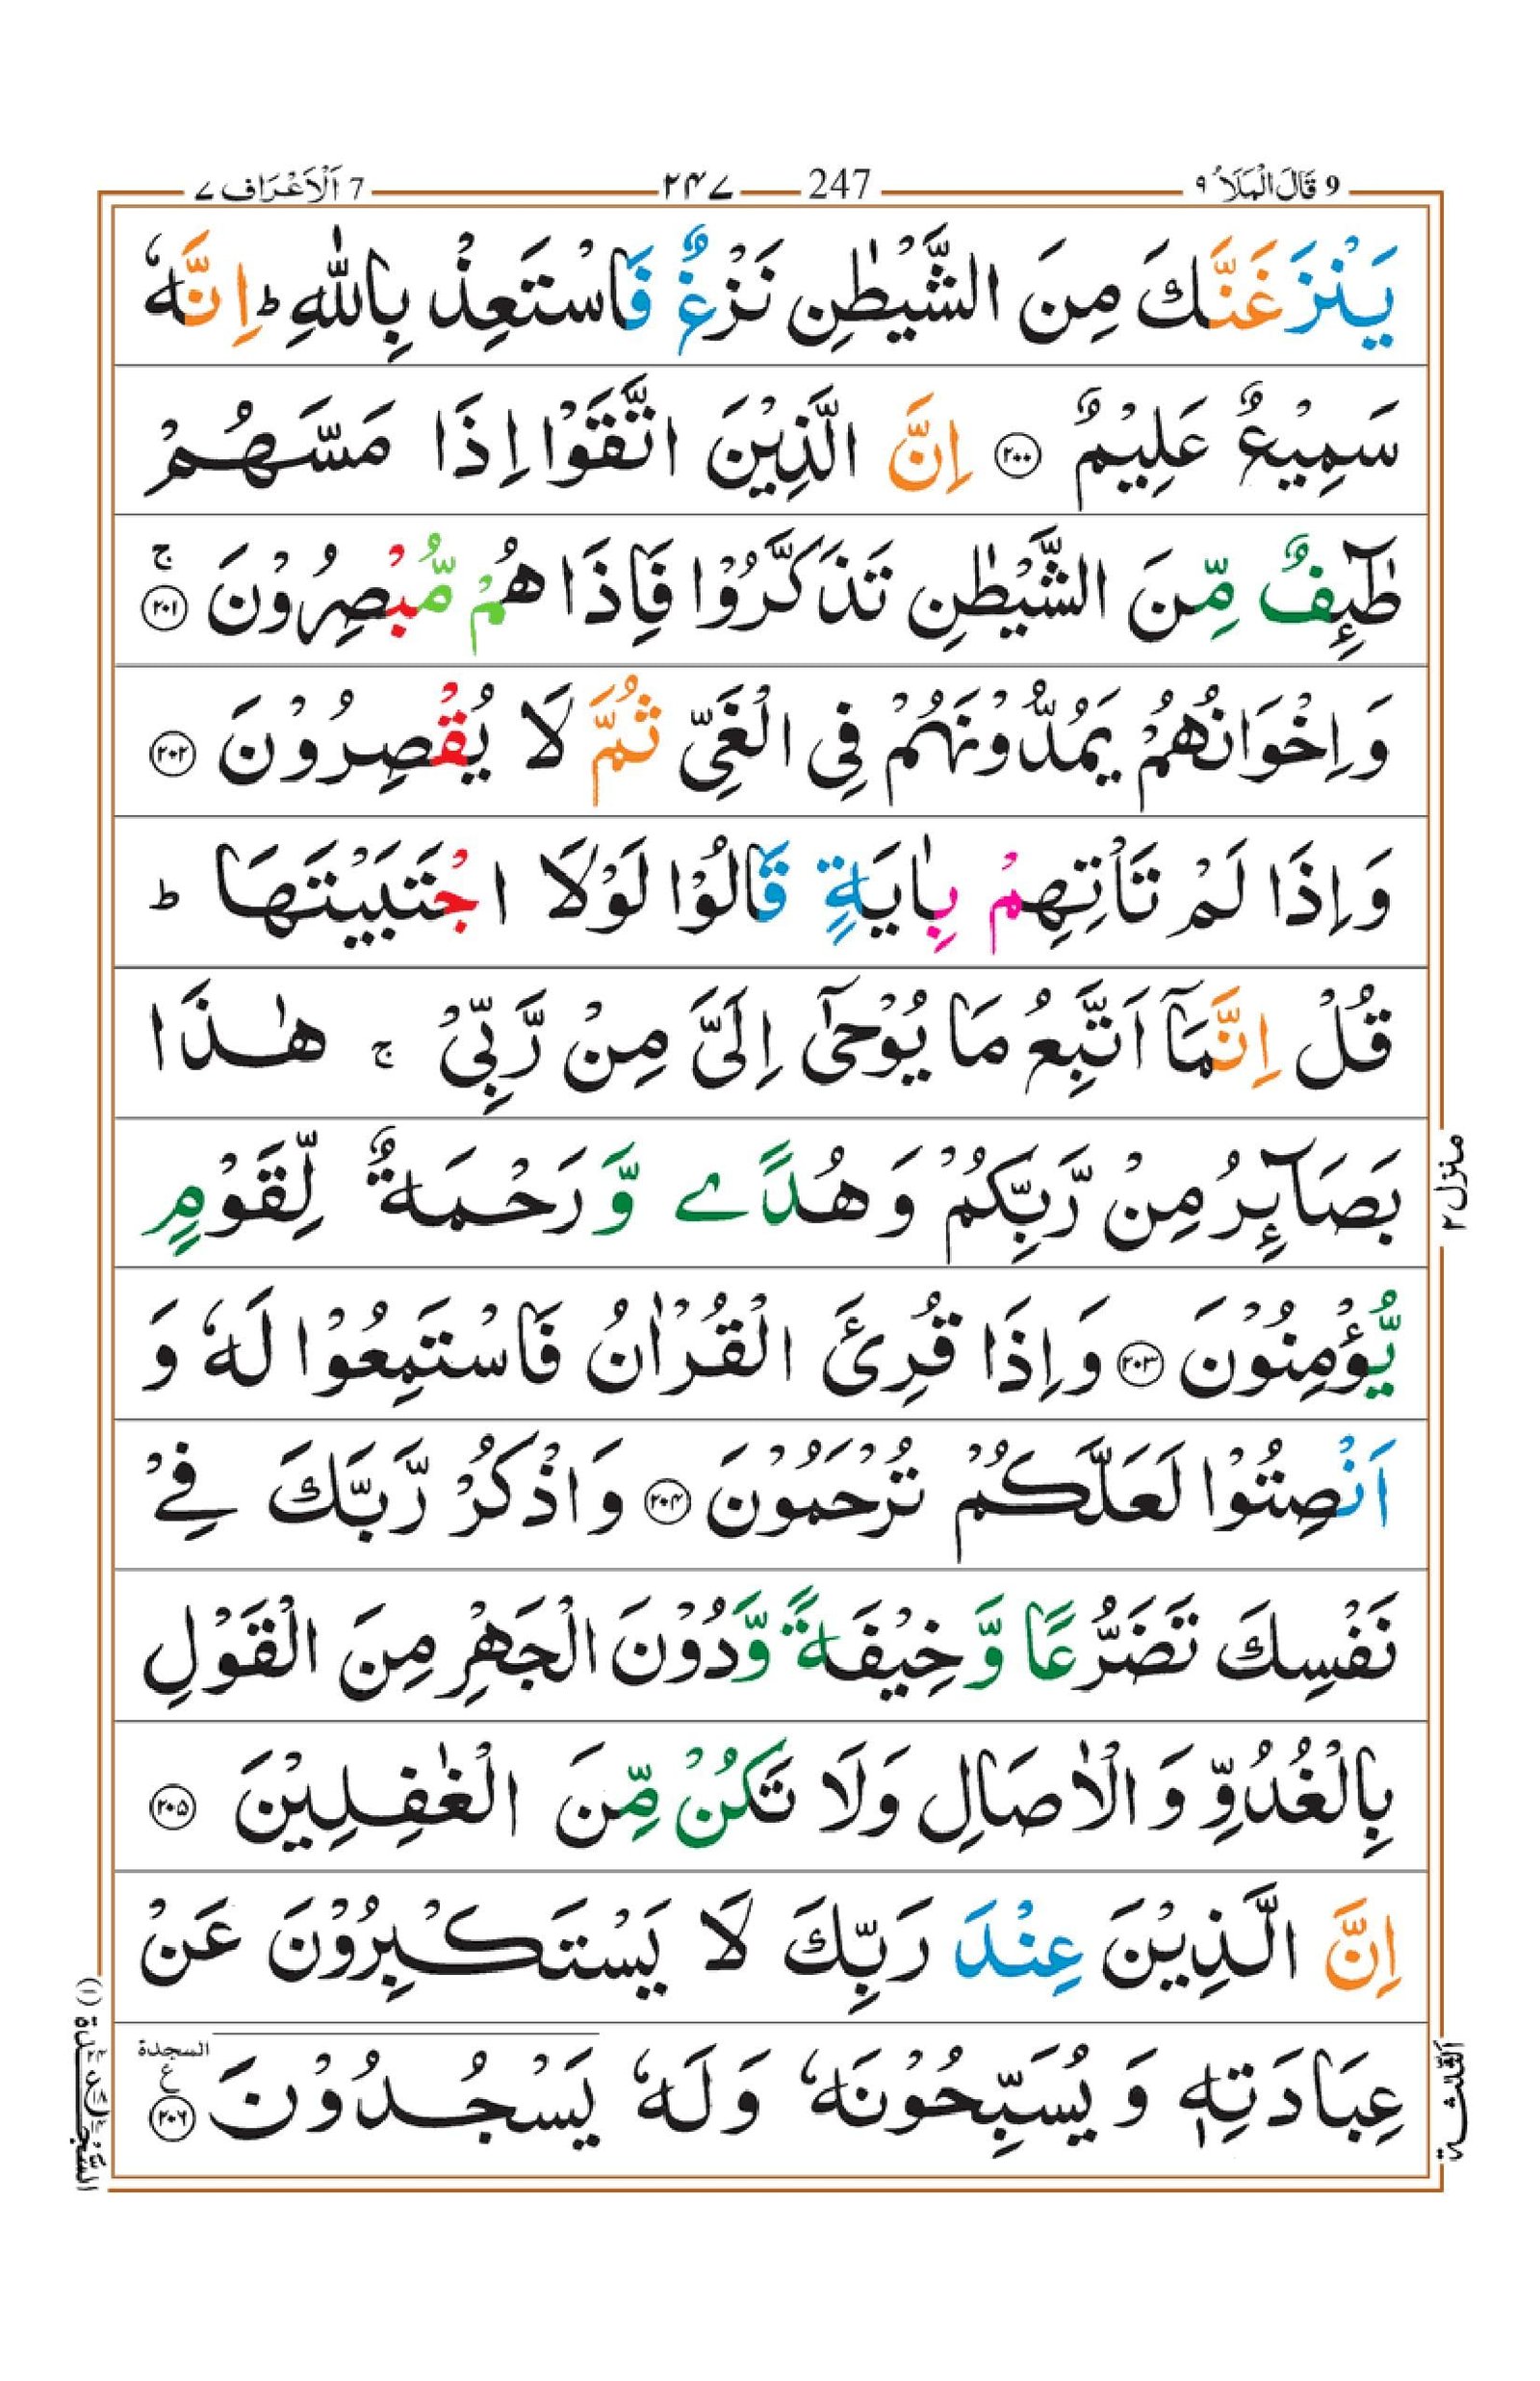 9 قَالَ الْمَلَاُ ۹ 247 ۲۴۷ 7 اَلْاَعْرَاف ۷
يَنْزَغَنَّكَ مِنَ الشَّيْطٰنِ نَزْغٌ فَاسْتَعِذْ بِاللّٰهِ ؕ اِنَّهٗ
سَمِيْعٌ عَلِيْمٌ ۝۲۰۰ اِنَّ الَّذِيْنَ اتَّقَوْا اِذَا مَسَّهُمْ
طٰٓئِفٌ مِّنَ الشَّيْطٰنِ تَذَكَّرُوْا فَاِذَا هُمْ مُّبْصِرُوْنَ ۚ ۝۲۰۱
وَاِخْوَانُهُمْ يَمُدُّوْنَهُمْ فِى الْغَىِّ ثُمَّ لَا يُقْصِرُوْنَ ۝۲۰۲
وَاِذَا لَمْ تَاْتِهِمْ بِاٰيَةٍ قَالُوْا لَوْلَا اجْتَبَيْتَهَا ؕ
قُلْ اِنَّمَاۤ اَتَّبِعُ مَا يُوْحٰٓى اِلَىَّ مِنْ رَّبِّىْ ۚ هٰذَا
بَصَآئِرُ مِنْ رَّبِّكُمْ وَهُدًى وَّرَحْمَةٌ لِّقَوْمٍ
يُّؤْمِنُوْنَ ۝۲۰۳ وَاِذَا قُرِئَ الْقُرْاٰنُ فَاسْتَمِعُوْا لَهٗ وَ
اَنْصِتُوْا لَعَلَّكُمْ تُرْحَمُوْنَ ۝۲۰۴ وَاذْكُرْ رَّبَّكَ فِىْ
نَفْسِكَ تَضَرُّعًا وَّخِيْفَةً وَّدُوْنَ الْجَهْرِ مِنَ الْقَوْلِ
بِالْغُدُوِّ وَالْاٰصَالِ وَلَا تَكُنْ مِّنَ الْغٰفِلِيْنَ ۝۲۰۵
اِنَّ الَّذِيْنَ عِنْدَ رَبِّكَ لَا يَسْتَكْبِرُوْنَ عَنْ
عِبَادَتِهٖ وَيُسَبِّحُوْنَهٗ وَلَهٗ يَسْجُدُوْنَ ۝۲۰۶ السجدة ع
منزل ۲
الثلثة
السجدة (۱)